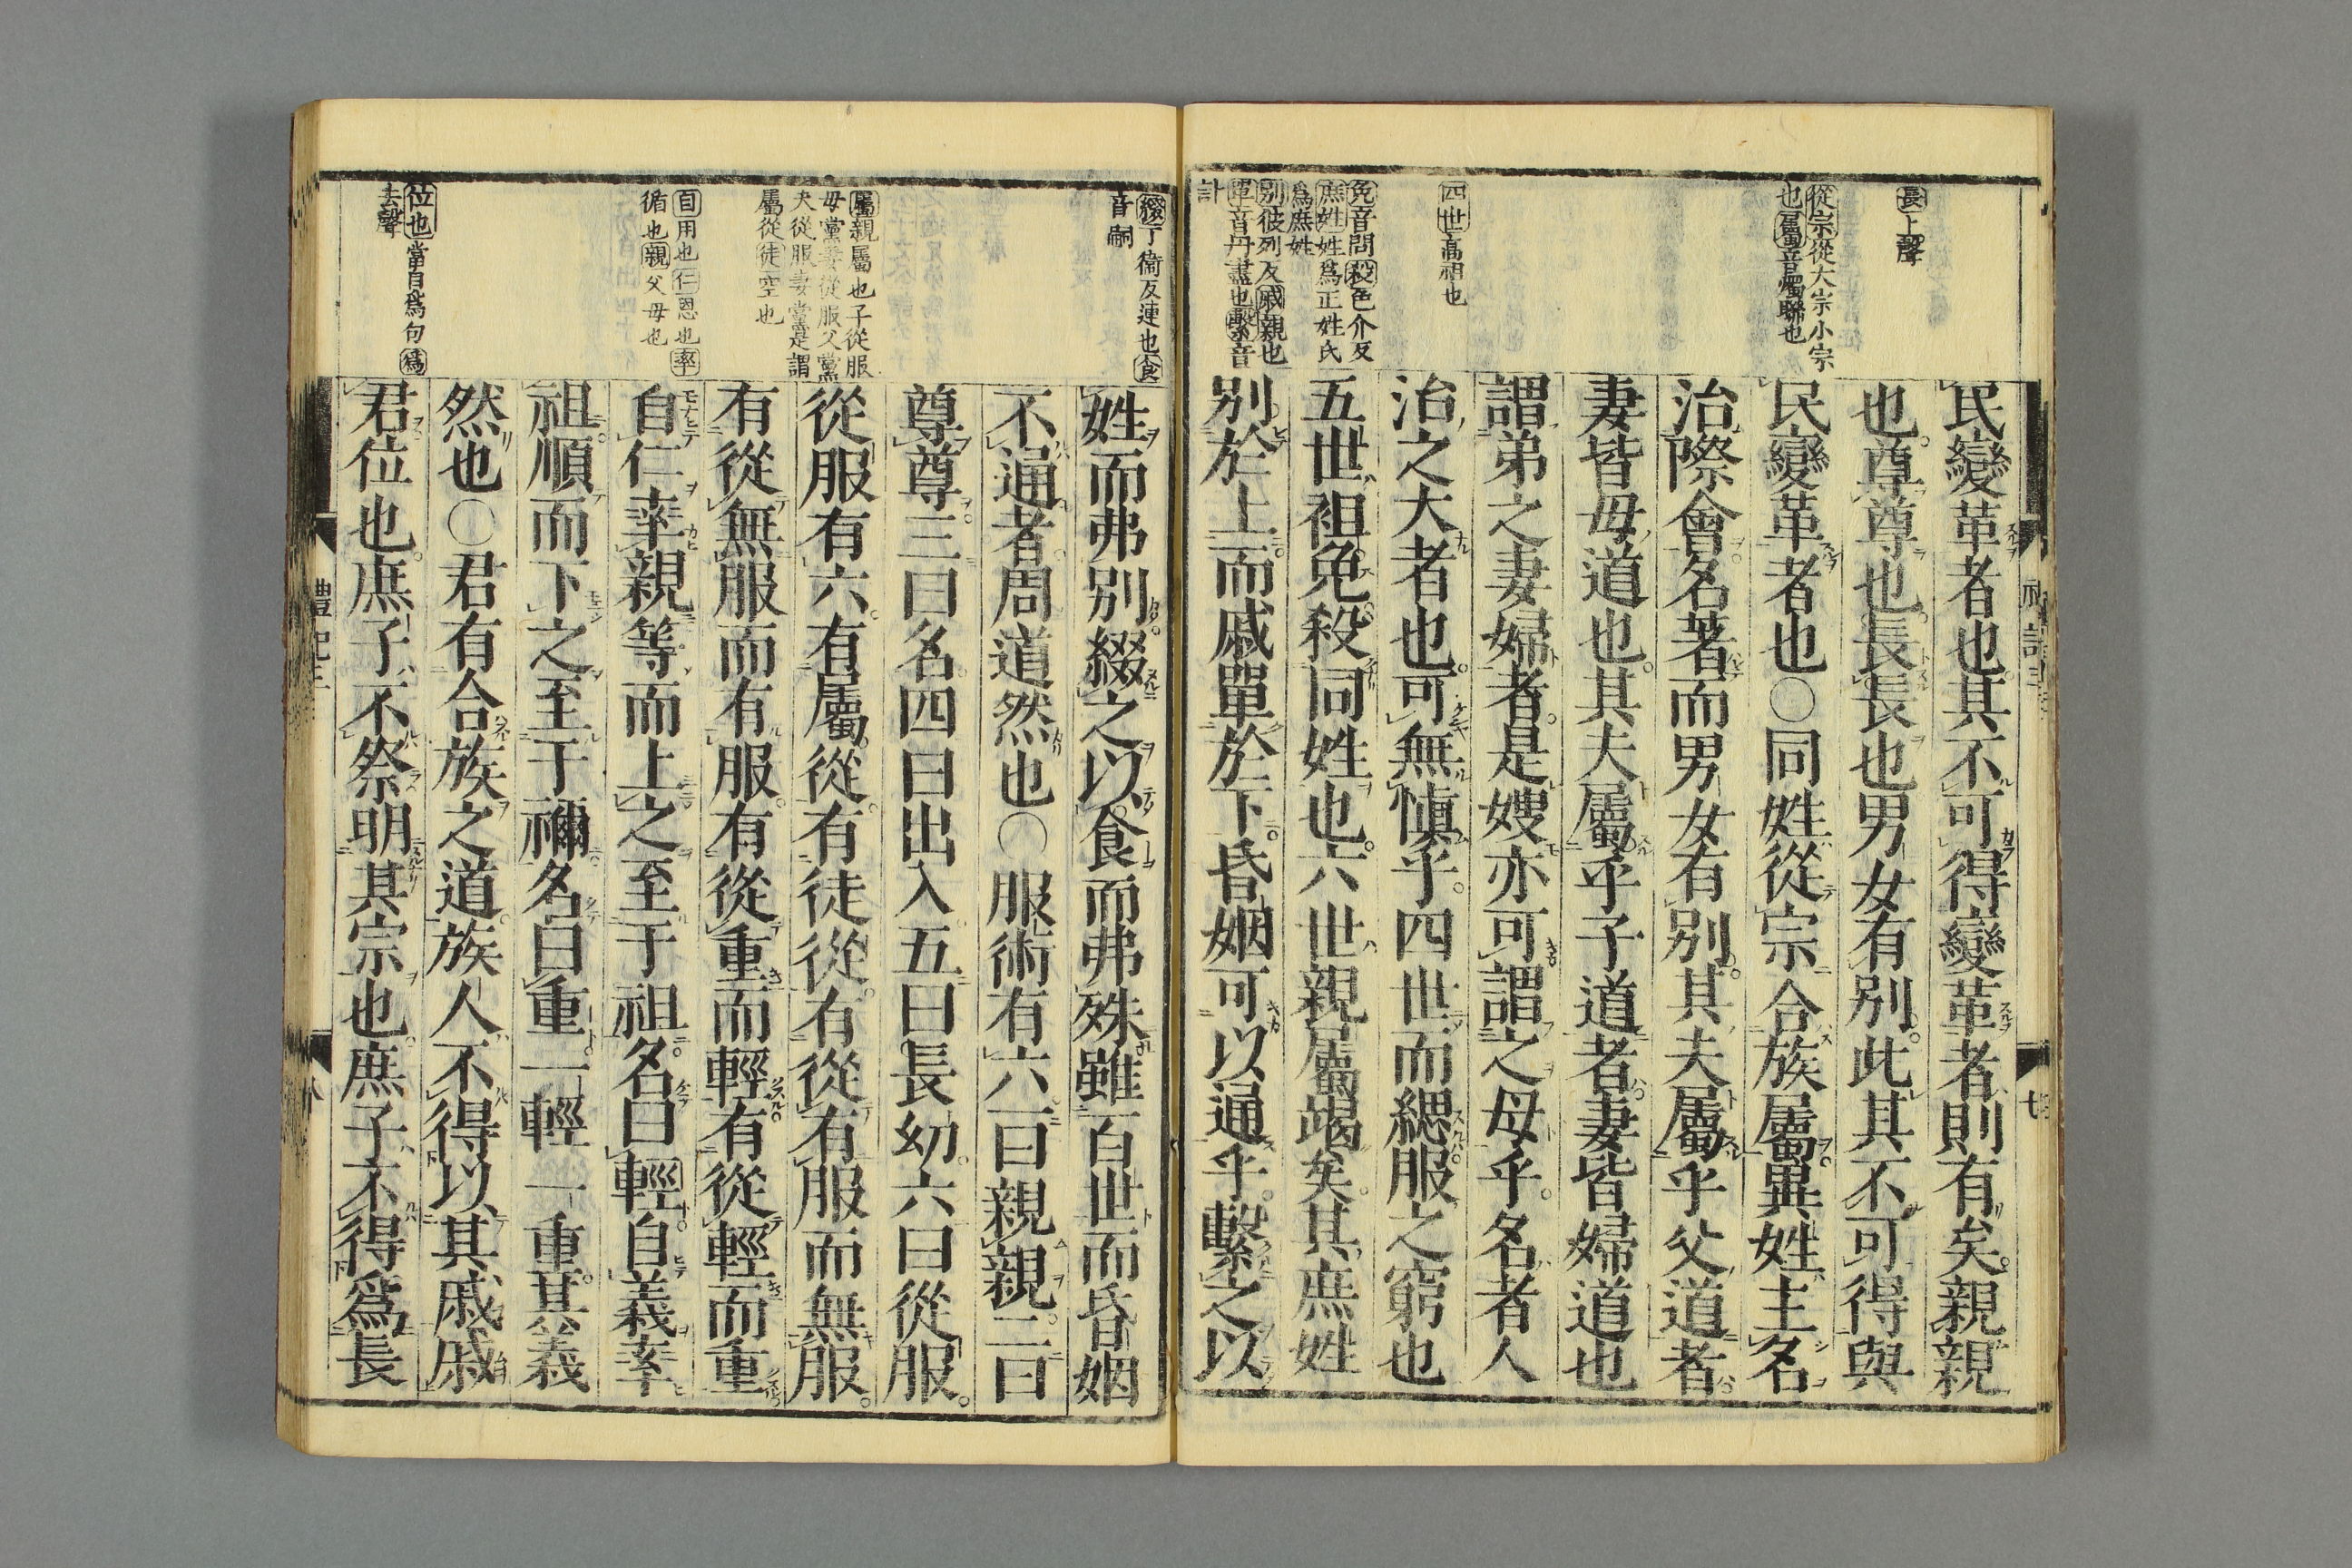 長上聲
從宗從大宗小宗
也屬音燭聯也
四世高祖也
免音問殺色介反
庶姓姓爲正姓氏
爲庶姓
別彼列反戚親也
單音丹盡也繫音
計
民變革者也其不可得變革者則有矣親親
也尊尊也長長也男女有別此其不可得與
民變革者也○同姓從宗合族屬異姓主名
治際會名著而男女有別其夫屬乎父道者
妻皆母道也其夫屬乎子道者妻皆婦道也
謂弟之妻婦者是嫂亦可謂之母乎名者人
治之大者也可無愼乎四世而緦服之窮也
五世袒免殺同姓也六世親屬竭矣其庶姓
別於上而戚單於下昏姻可以通乎繫之以
綴丁衞反連也食
音嗣
屬親屬也子從服
母黨妻從服父黨
夫從服妻黨是謂
屬從徒空也
自用也仁恩也率
循也親父母也
位也當自爲句爲
去聲
姓而弗別綴之以食而弗殊雖百世而昏姻
不通者周道然也○服術有六一曰親親二曰
尊尊三曰名四曰出入五曰長幼六曰從服
從服有六有屬從有徒從有從有服而無服
有從無服而有服有從重而輕有從輕而重
自仁率親等而上之至于祖名曰輕自義率
祖順而下之至于禰名曰重一輕一重其義
然也○君有合族之道族人不得以其戚戚
君位也庶子不祭明其宗也庶子不得爲長
禮記三
八
禮記三
七